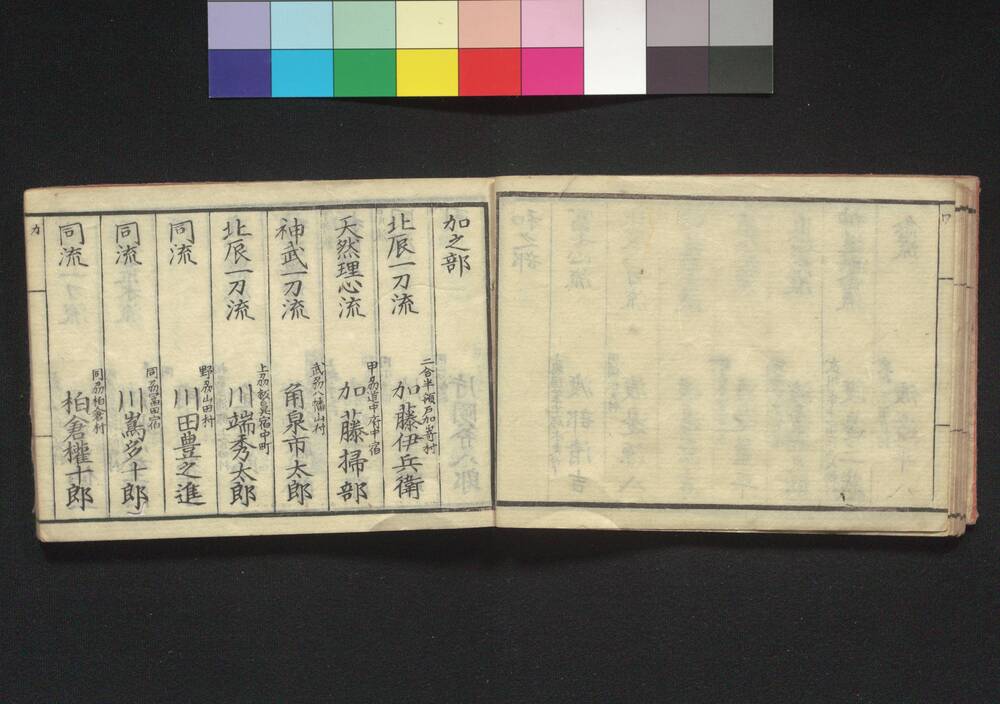 加之部
北辰一刀流 二合半領戸加嵜村 加藤伊兵衛
天然理心流 甲刕道中府中宿 加藤掃部
神武一刀流 武刕八幡山村 角泉市太郎
北辰一刀流 上刕 宿中町 川端秀太郎
同流 野刕山田村 川田豊之進
同流 同刕冨田宿 川嶌 十郎
同流 同刕柏倉村 柏倉權十郎
カ
ワ